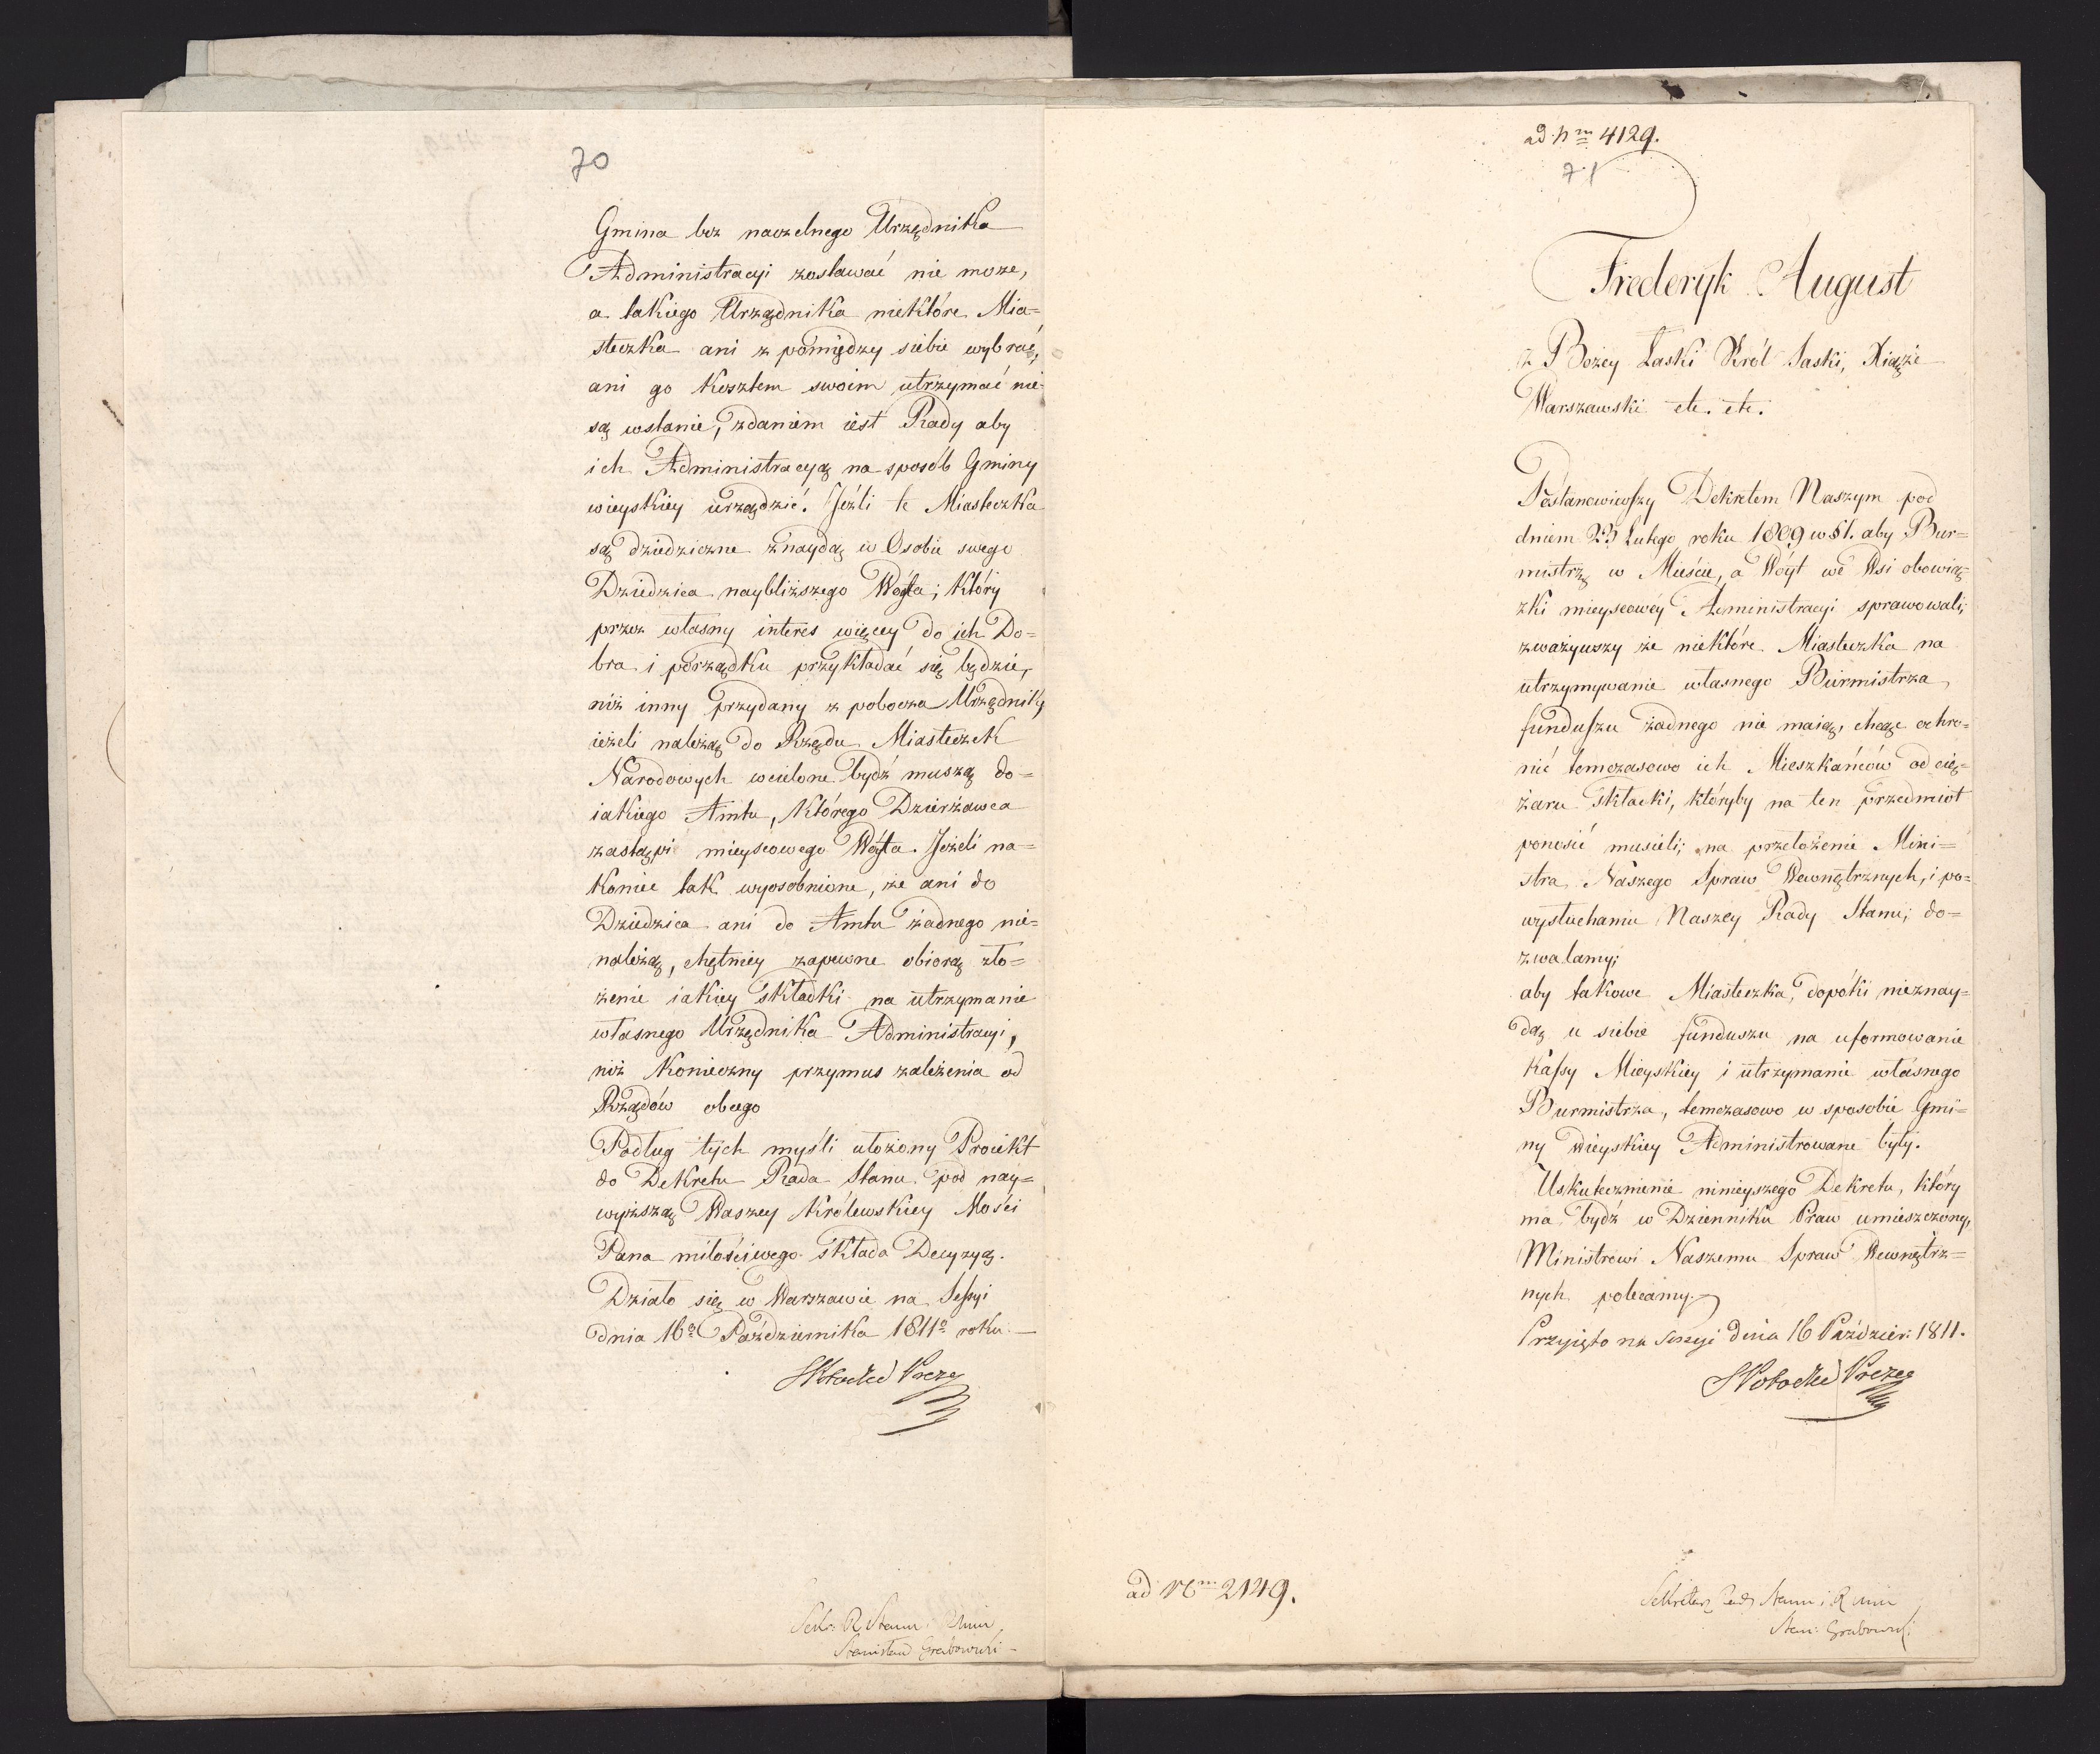 70
Gmina bez naczelnego Urzędnika
Administracyi zostawać nie może,
a takiego Urzędnika niektóre Mia=
steczka ani z pomiędzy siebie wybrać,
ani go kosztem swoim utrzymać nie
są wstanie, zdaniem iest Rady aby
ich Administracyą na sposób Gminy
wieyskiey urządzić. Jeźli te Miasteczka
są dziedziczne znaydą w Osobie swego
Dziedzica naybliższego Wóyta; który
przez własny interes więcey do ich Do=
bra i porządku przykładać się będzie,
niż inny przydany z pobocza Urzędnik,
ieżeli należą do Rzędu Miasteczek
Narodowych wcielone bydź muszą do=
iakiego Amtu, którego Dzierżawca
zastąpi mieyscowego Wóyta. Jeżeli na=
koniec tak wyosobnione, że ani do
Dziedzica ani do Amtu żadnego nie=
należą, chętniey zapewne obiorą zło=
żenie iakiey składki na utrzymanie
własnego Urzędnika Administracyi,
niż konieczny przymus zależenia od
Rządów obcego
Podług tych myśli ułożony Proiekt
do Dekretu Rada Stanu pod nay=
wyższą Waszey Królewskiey Mości
Pana miłościwego składa Decyzyą.
Działo się w Warszawie na Sessyi
dnia 16º Października 1811º roku.—
SPotocki Prezes
Sekr: R Stanu i Min
Stanisław Grabowski
ad Nm 4129.
71
Frederyk August
z Bożey Łaski Król Saski, Xiąże
Warszawski etc. etc.
Postanowiwszy Dekretem Naszym pod
dniem 23 Lutego roku 1809 w §1. aby Bur=
mistrz w Mieście, a Wóyt we Wsi obowią=
zki mieyscowéy Administracyi sprawowali;
zważywszy że niektóre Miasteczka na
utrzymywanie własnego Burmistrza,
funduszu żadnego nie maią, chcąc ochro=
nić temczasowo ich Mieszkańców od cię=
żaru składki, któryby na ten przedmiot
ponosić musieli; na przełożenie Mini=
stra Naszego Spraw Wewnętrznych, i po=
wysłuchaniu Naszey Rady Stanu; do=
zwalamy;
aby takowe Miasteczka, dopóki nieznay=
dą u siebie funduszu na uformowanie
Kassy Mieyskiey i utrzymanie własnego
Burmistrza, temczasowo w sposobie Gmi=
ny Wieyskiey Administrowane były.
Uskutecznienie ninieyszego Dekretu, który
ma bydź w Dzienniku Praw umieszczony,
Ministrowi Naszemu Spraw Wewnętrz=
nych polecamy.
Przyięto na Sessyi dnia 16 Paździer: 1811.
SPotocki Prezes
ad Nm 2149.
Sekretarz Rady Stanu i R Min
Stan: Grabowski